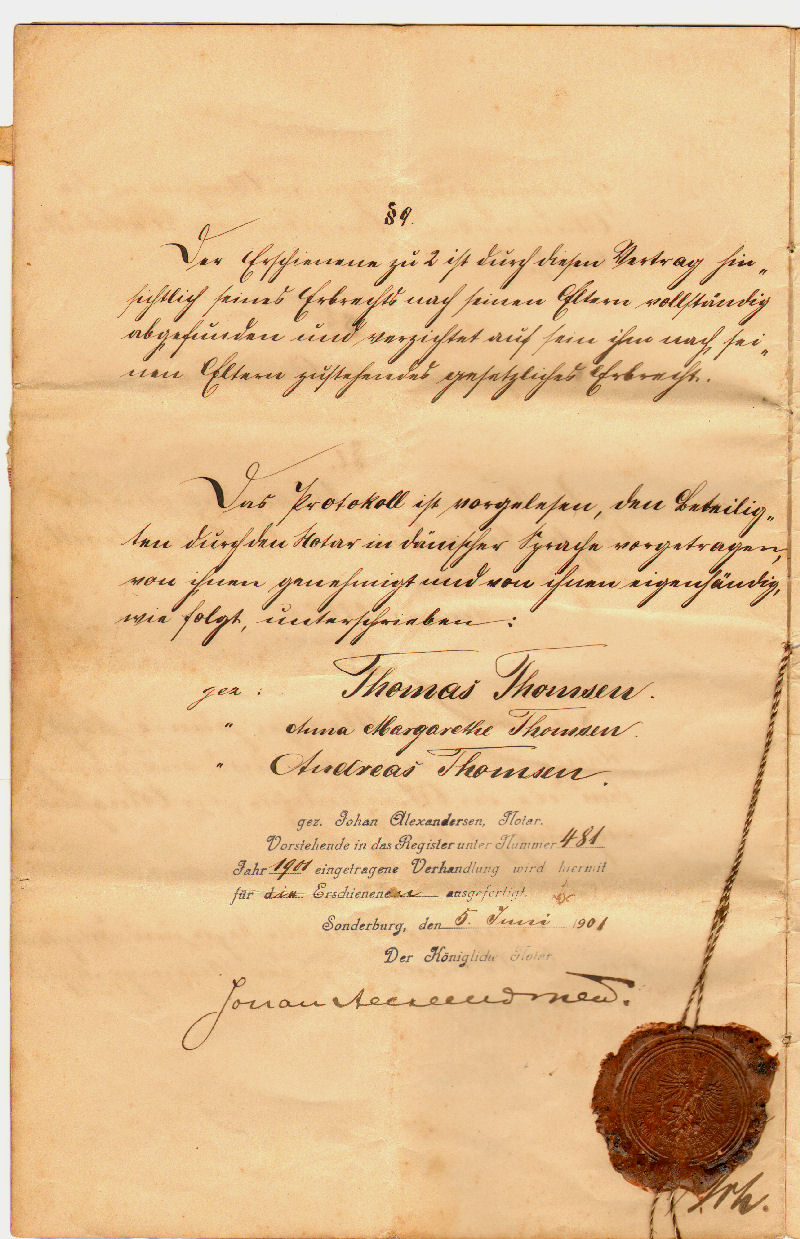 § 9.
Der Erschienene zu 2 ist durch diesen Vertrag hin„
sichtlich seines Erbrechts nach seinen Eltern vollständig
abgefunden und verzichtet auf sein ihm nach sei„
nen Eltern zustehendes gesetzliches Erbrecht.
Das Protokoll ist vorgelesen, den Beteilig„
ten durch den Notar in dänischer Sprache vorgetragen,
von ihnen genehmigt und von ihnen eigenhändig,
wie folgt, unterschrieben:
gez: Thomas Thomsen.
" Anna Margarethe Thomsen.
" Andreas Thomsen.
gez. Johan Alexandersen, Notar.
Vorstehende in das Register unter Nummer 481
Jahr 1901 eingetragene Verhandlung wird hiermit
für die Erschienenen ausgefertigt.
Sonderburg, den 5. Juni 1901
Der Königliche Notar
Johan Alexandersen.